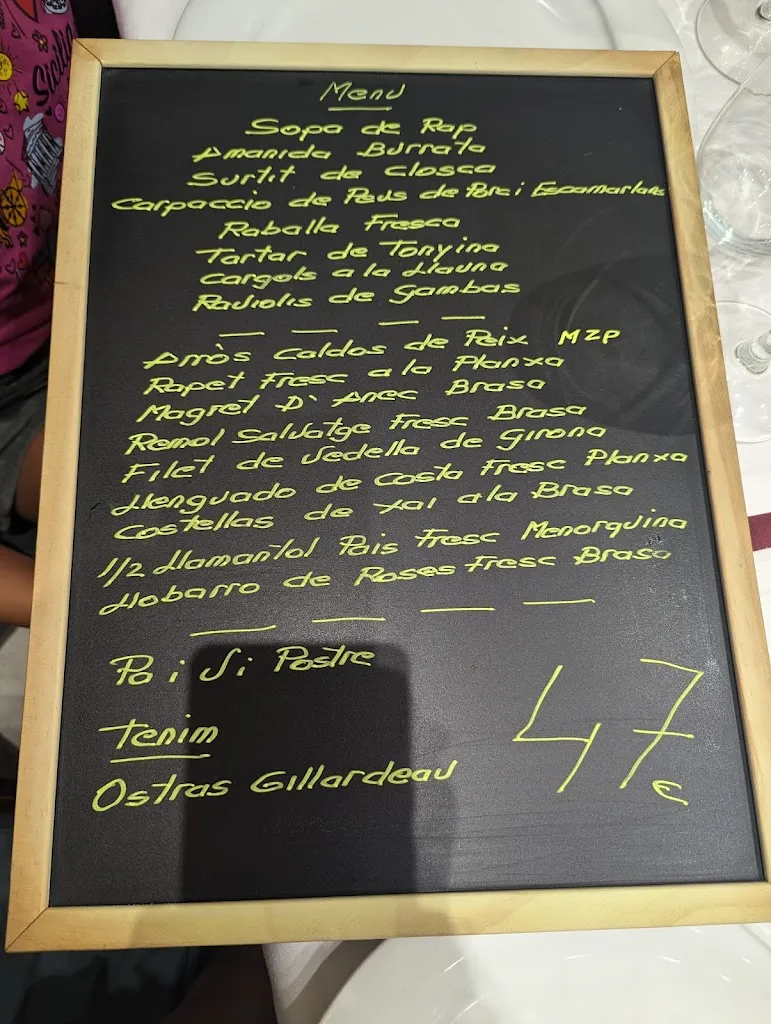 Sicilia
Menú
Sopa de Rap
Amanida Burrata
Surtit de Closca
Carpaccio de Peus de Porc i Escamarlans
Raballa Fresca
Tartar de Tonyina
Cargols a la Llauna
Raviolis de Gambas
Arròs Caldos de Peix MZP
Rapet Fresc a la Planxa
Magret D'Anec Brasa
Remol Salvatge Fresc Brasa
Filet de Vedella de Girona
Llenguado de Costa Fresc Planxa
Costellas de Xai a la Brasa
1/2 Llamantol Pais Fresc Menorquina
Llobarro de Roses Fresc Brasa
Pa i Vi Postre
47€
Tenim
Ostras Gillardeau